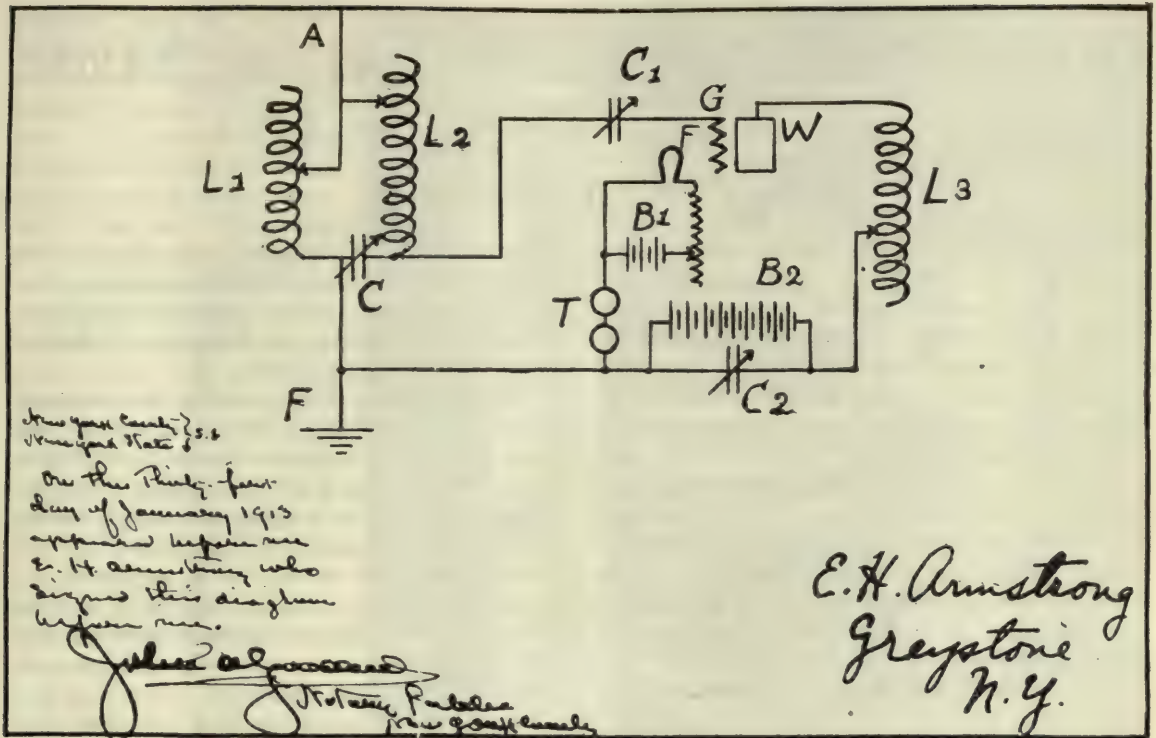 A
L1
L2
C
C1
G
F
W
B1
L3
T
B2
C2
F
New York County } s.s
New York State
On this Thirty-first
day of January 1913
appeared before me
E. H. Armstrong who
signed this diagram
before me.
Notary Public
New York County
E.H. Armstrong
Greystone
N.Y.